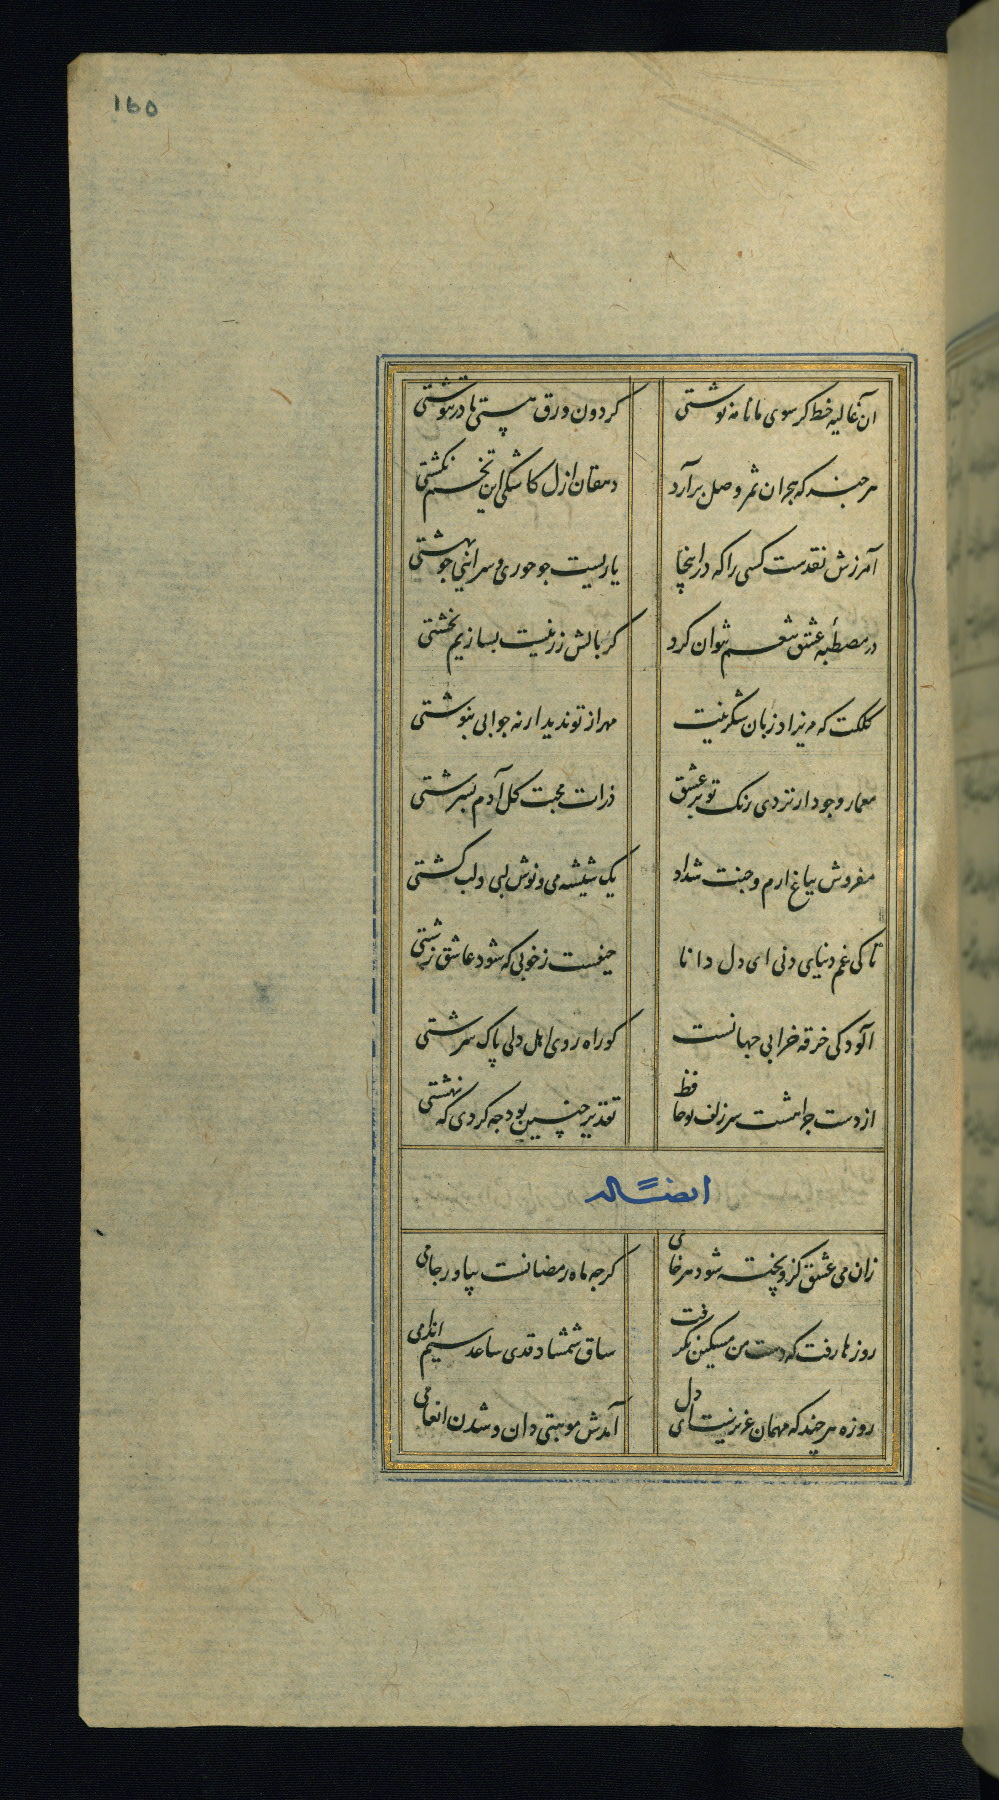 ۱۶۵
ان غالیه خط کر سوی ما نامه نوشتی
کردون ورق هستی ما درننوشتی
هر چند که هجران ثمر وصل برآرد
دهقان ازل کاشکی این تخم نکشتی
آمرزش نقدست کسی را که در اینجا
یاریست جو حوری و سرایی جو بهشتی
در مصطبهٔ عشق تنعم نتوان کرد
کر بالش زر نیست بسازیم بخشتی
کلکت که مریزاد زبان شکرینت
مهر از تو ندید ار نه جوابی بنوشتی
معمار وجود ار نزدی رنک تو بر عشق
ذرات محبت کل آدم بسرشتی
مفروش بباغ ارم و جنت شداد
یک شیشه می و نوش لبی و لب کشتی
تا کی غم دنیای دنی ای دل دانا
حیفست ز خوبی که شود عاشق زشتی
آلودکی خرقه خرابی جهانست
کو راه روی اهل دلی پاک سرشتی
از دست جرا هشت سر زلف تو حافظ
تقدیر چنین بود جه کردی که نهشتی
ایضًا له
زان می عشق کزو پخته شود هر خامی
کرجه ماه رمضانست بیاور جامی
روزها رفت که دست من مسکین نکرفت
ساق شمشاد قدی ساعد سیم اندامی
روزه هر چند که مهمان عزیزیست ای دل
آمدش موهبتی دان و شدن انعامی